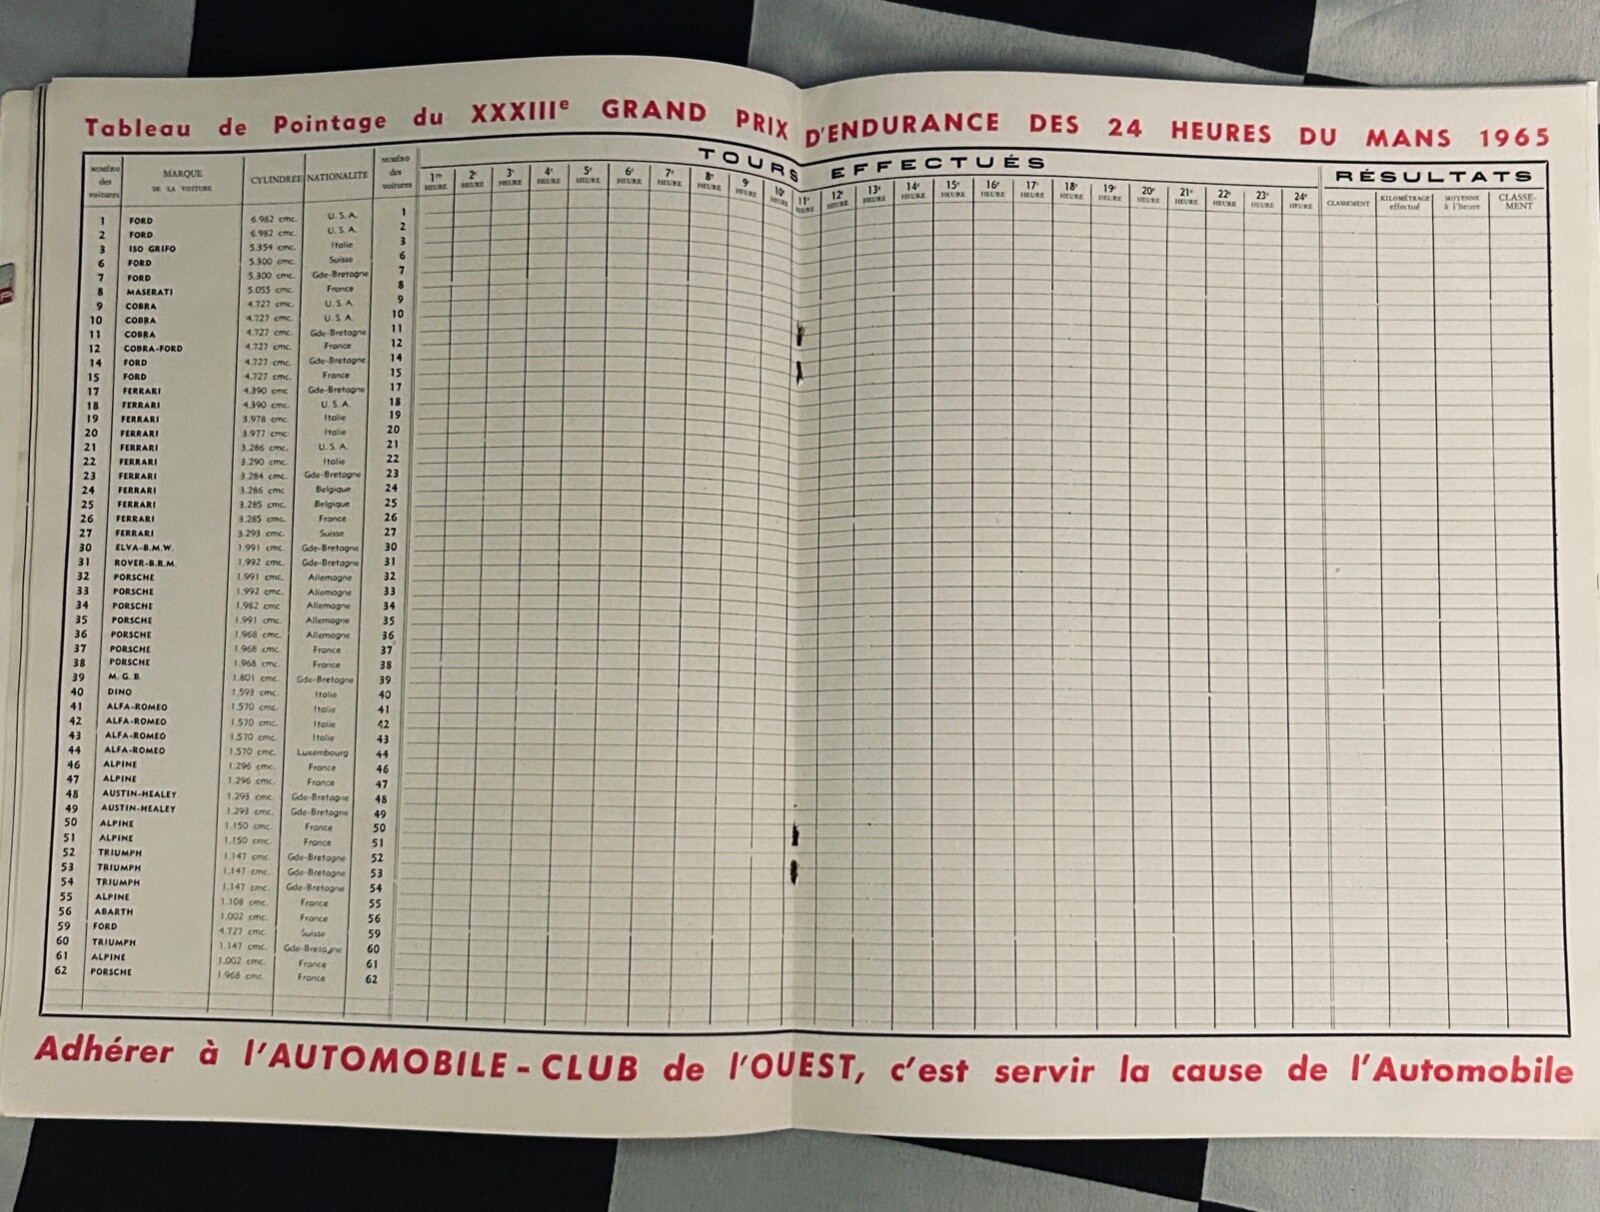 Tableau de Pointage du XXXIIIe GRAND PRIX D'ENDURANCE DES 24 HEURES DU MANS 1965
NUMÉRO des voitures MARQUE DE LA VOITURE CYLINDRÉE NATIONALITÉ NUMÉRO des voitures TOURS EFFECTUÉS RÉSULTATS
1re HEURE 2e HEURE 3e HEURE 4e HEURE 5e HEURE 6e HEURE 7e HEURE 8e HEURE 9e HEURE 10e HEURE 11e HEURE 12e HEURE 13e HEURE 14e HEURE 15e HEURE 16e HEURE 17e HEURE 18e HEURE 19e HEURE 20e HEURE 21e HEURE 22e HEURE 23e HEURE 24e HEURE CLASSEMENT KILOMÉTRAGE effectué MOYENNE à l'heure CLASSE-MENT
1 FORD 6.982 cmc. U.S.A. 1
2 FORD 6.982 cmc. U.S.A. 2
3 ISO GRIFO 5.354 cmc. Italie 3
6 FORD 5.300 cmc. Suisse 6
7 FORD 5.300 cmc. Gde-Bretagne 7
8 MASERATI 5.055 cmc. France 8
9 COBRA 4.727 cmc. U.S.A. 9
10 COBRA 4.727 cmc. U.S.A. 10
11 COBRA 4.727 cmc. Gde-Bretagne 11
12 COBRA-FORD 4.727 cmc. France 12
14 FORD 4.727 cmc. Gde-Bretagne 14
15 FORD 4.727 cmc. France 15
17 FERRARI 4.390 cmc Gde-Bretagne 17
18 FERRARI 4.390 cmc. U.S.A. 18
19 FERRARI 3.978 cmc. Italie 19
20 FERRARI 3.977 cmc. Italie 20
21 FERRARI 3.286 cmc. U.S.A. 21
22 FERRARI 3.290 cmc. Italie 22
23 FERRARI 3.284 cmc. Gde-Bretagne 23
24 FERRARI 3.286 cmc Belgique 24
25 FERRARI 3.285 cmc. Belgique 25
26 FERRARI 3.285 cmc. France 26
27 FERRARI 3.293 cmc. Suisse 27
30 ELVA-B.M.W. 1.991 cmc. Gde-Bretagne 30
31 ROVER-B.R.M. 1.992 cmc. Gde-Bretagne 31
32 PORSCHE 1.991 cmc. Allemagne 32
33 PORSCHE 1.992 cmc. Allemagne 33
34 PORSCHE 1.982 cmc Allemagne 34
35 PORSCHE 1.991 cmc. Allemagne 35
36 PORSCHE 1.968 cmc. Allemagne 36
37 PORSCHE 1.968 cmc. France 37
38 PORSCHE 1.968 cmc. France 38
39 M.G.B. 1.801 cmc. Gde-Bretagne 39
40 DINO 1.593 cmc. Italie 40
41 ALFA-ROMEO 1.570 cmc. Italie 41
42 ALFA-ROMEO 1.570 cmc. Italie 42
43 ALFA-ROMEO 1.570 cmc. Italie 43
44 ALFA-ROMEO 1.570 cmc. Luxembourg 44
46 ALPINE 1.296 cmc. France 46
47 ALPINE 1.296 cmc. France 47
48 AUSTIN-HEALEY 1.293 cmc. Gde-Bretagne 48
49 AUSTIN-HEALEY 1.293 cmc. Gde-Bretagne 49
50 ALPINE 1.150 cmc. France 50
51 ALPINE 1.150 cmc. France 51
52 TRIUMPH 1.147 cmc. Gde-Bretagne 52
53 TRIUMPH 1.147 cmc. Gde-Bretagne 53
54 TRIUMPH 1.147 cmc. Gde-Bretagne 54
55 ALPINE 1.108 cmc. France 55
56 ABARTH 1.002 cmc. France 56
59 FORD 4.727 cmc. Suisse 59
60 TRIUMPH 1.147 cmc. Gde-Bretagne 60
61 ALPINE 1.002 cmc. France 61
62 PORSCHE 1.968 cmc. France 62
Adhérer à l'AUTOMOBILE-CLUB de l'OUEST, c'est servir la cause de l'Automobile